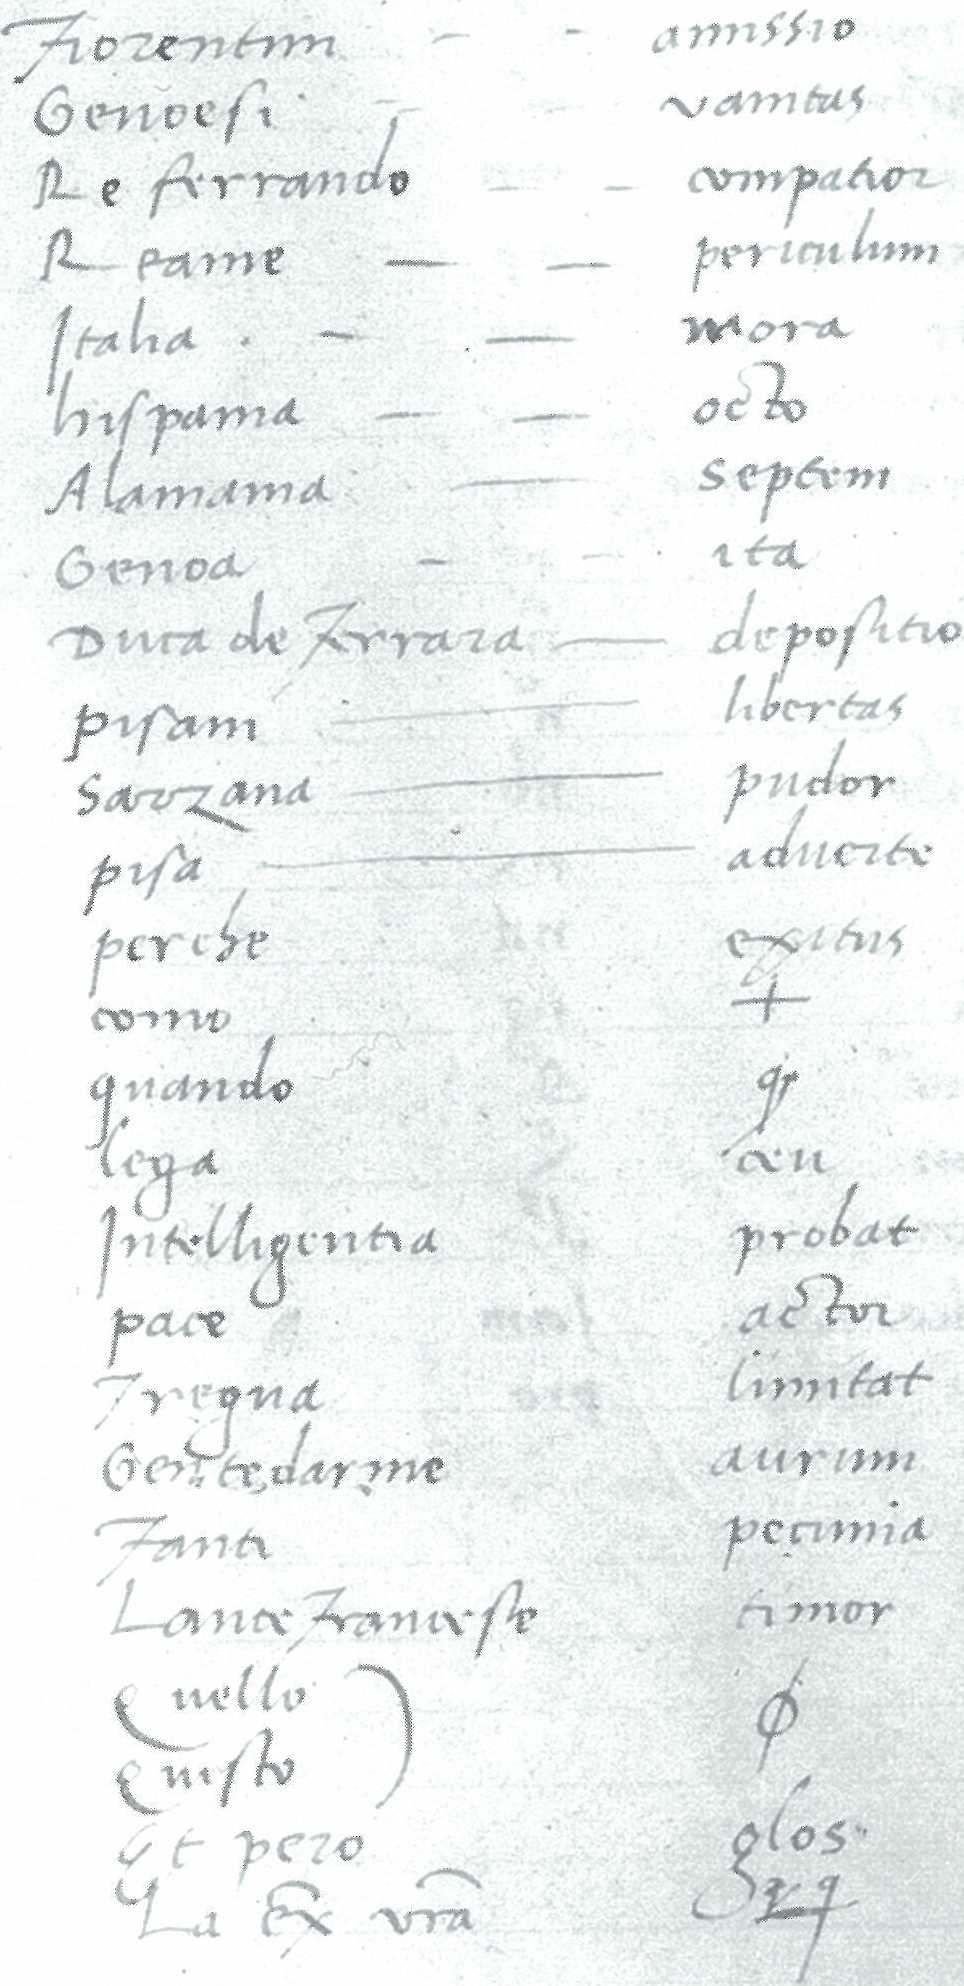 Fiorentini - - amissio
Genoesi - - vanitas
Re ferrando - - compatior
Reame - - periculum
Italia - - mora
hispania - - octo
Alamania - septem
Genoa - - ita
Duca de Ferrara - depositio
pisani - libertas
Sarzana - pudor
pisa - aduerte
perche exitus
como +
quando
lega ceu
Intelligentia probat
pace actor
Tregua limitat
Gente darme aurum
Fanti pecunia
Lance Francese timor
Quello ) ϕ
Questo
Et pero glos
La Ex vra